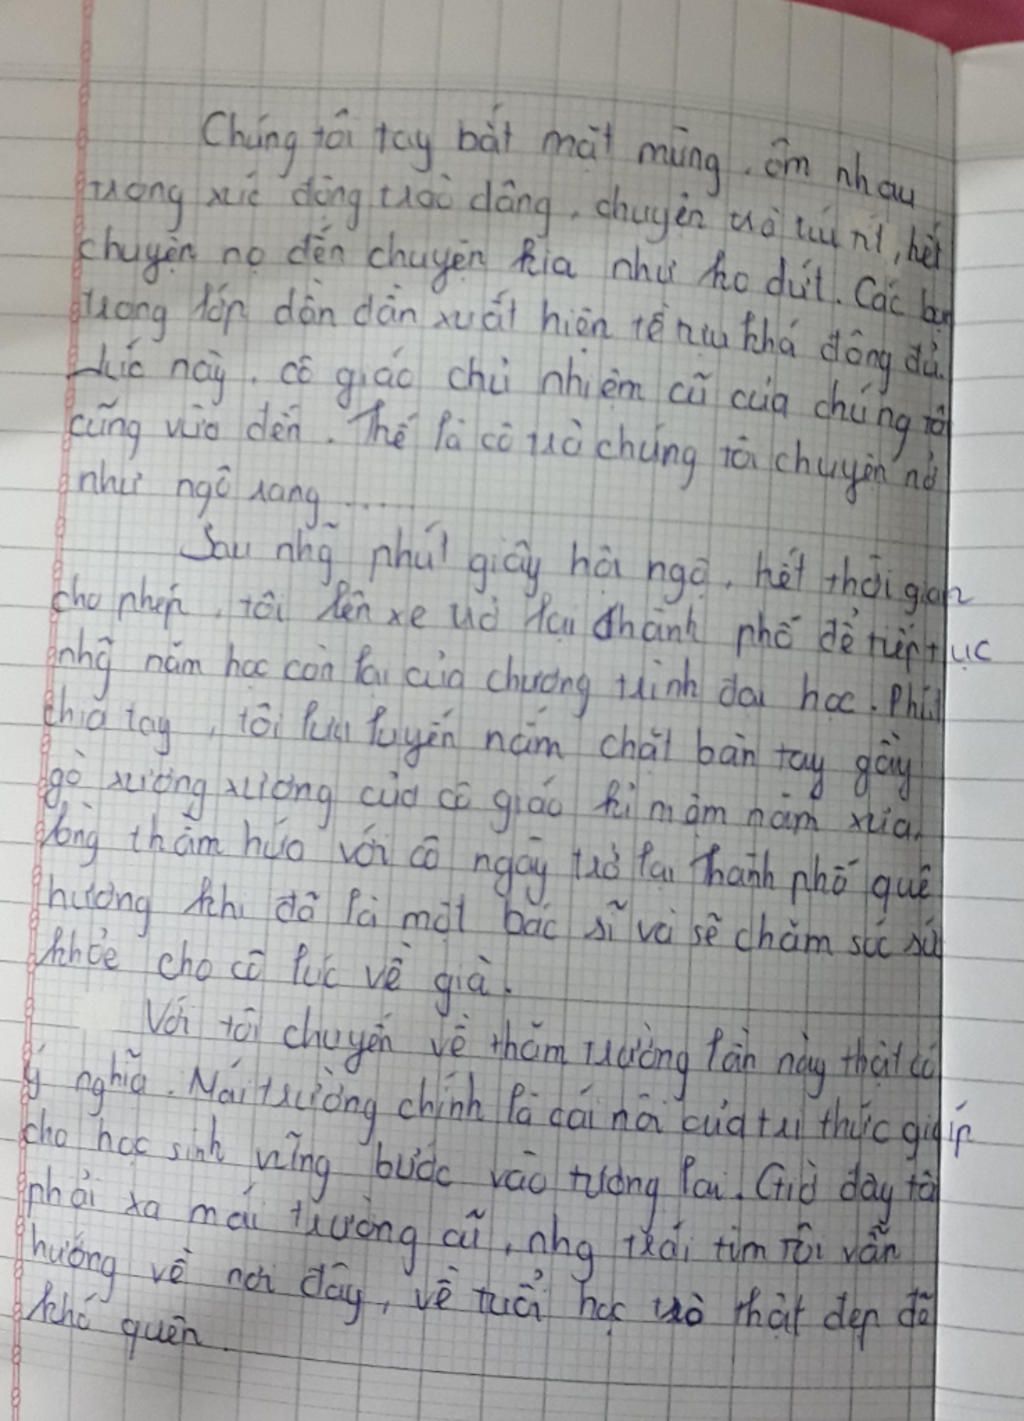 Chúng tôi tay bắt mặt mừng, ôm nhau
trong xúc động trào dâng, chuyện trò ríu rít, hết
chuyện nọ đến chuyện kia như ko dứt. Các bạn
trong lớp dần dần xuất hiện tề tựu khá đông đủ.
Lúc này, cô giáo chủ nhiệm cũ của chúng tôi
cũng vừa đến. Thế là cô trò chúng tôi chuyện nở
như ngô rang......
Sau nhg̃ phút giây hội ngộ, hết thời gian
cho phép, tôi lên xe trở lại thành phố để tiếp tục
nhg̃ năm học còn lại của chương trình đại học. Phút
chia tay, tôi lưu luyến nắm chặt bàn tay gầy
gò xương xương của cô giáo kỉ mậm năm xưa.
lòng thầm hứa với cô ngày trở lại thành phố quê
hương khi đó là một bác sĩ và sẽ chăm sóc sức
khỏe cho cô lúc về già.
Với tôi chuyến về thăm trường lần này thật có
ý nghĩa. Mái trường chính là cái nôi của tri thức giúp
cho học sinh vững bước vào tương lai. Giờ đây tôi
phải xa mái trường cũ, nhg trái tim tôi vẫn
hướng về nơi đây, về tuổi học trò thật đẹp đẽ
khó quên.